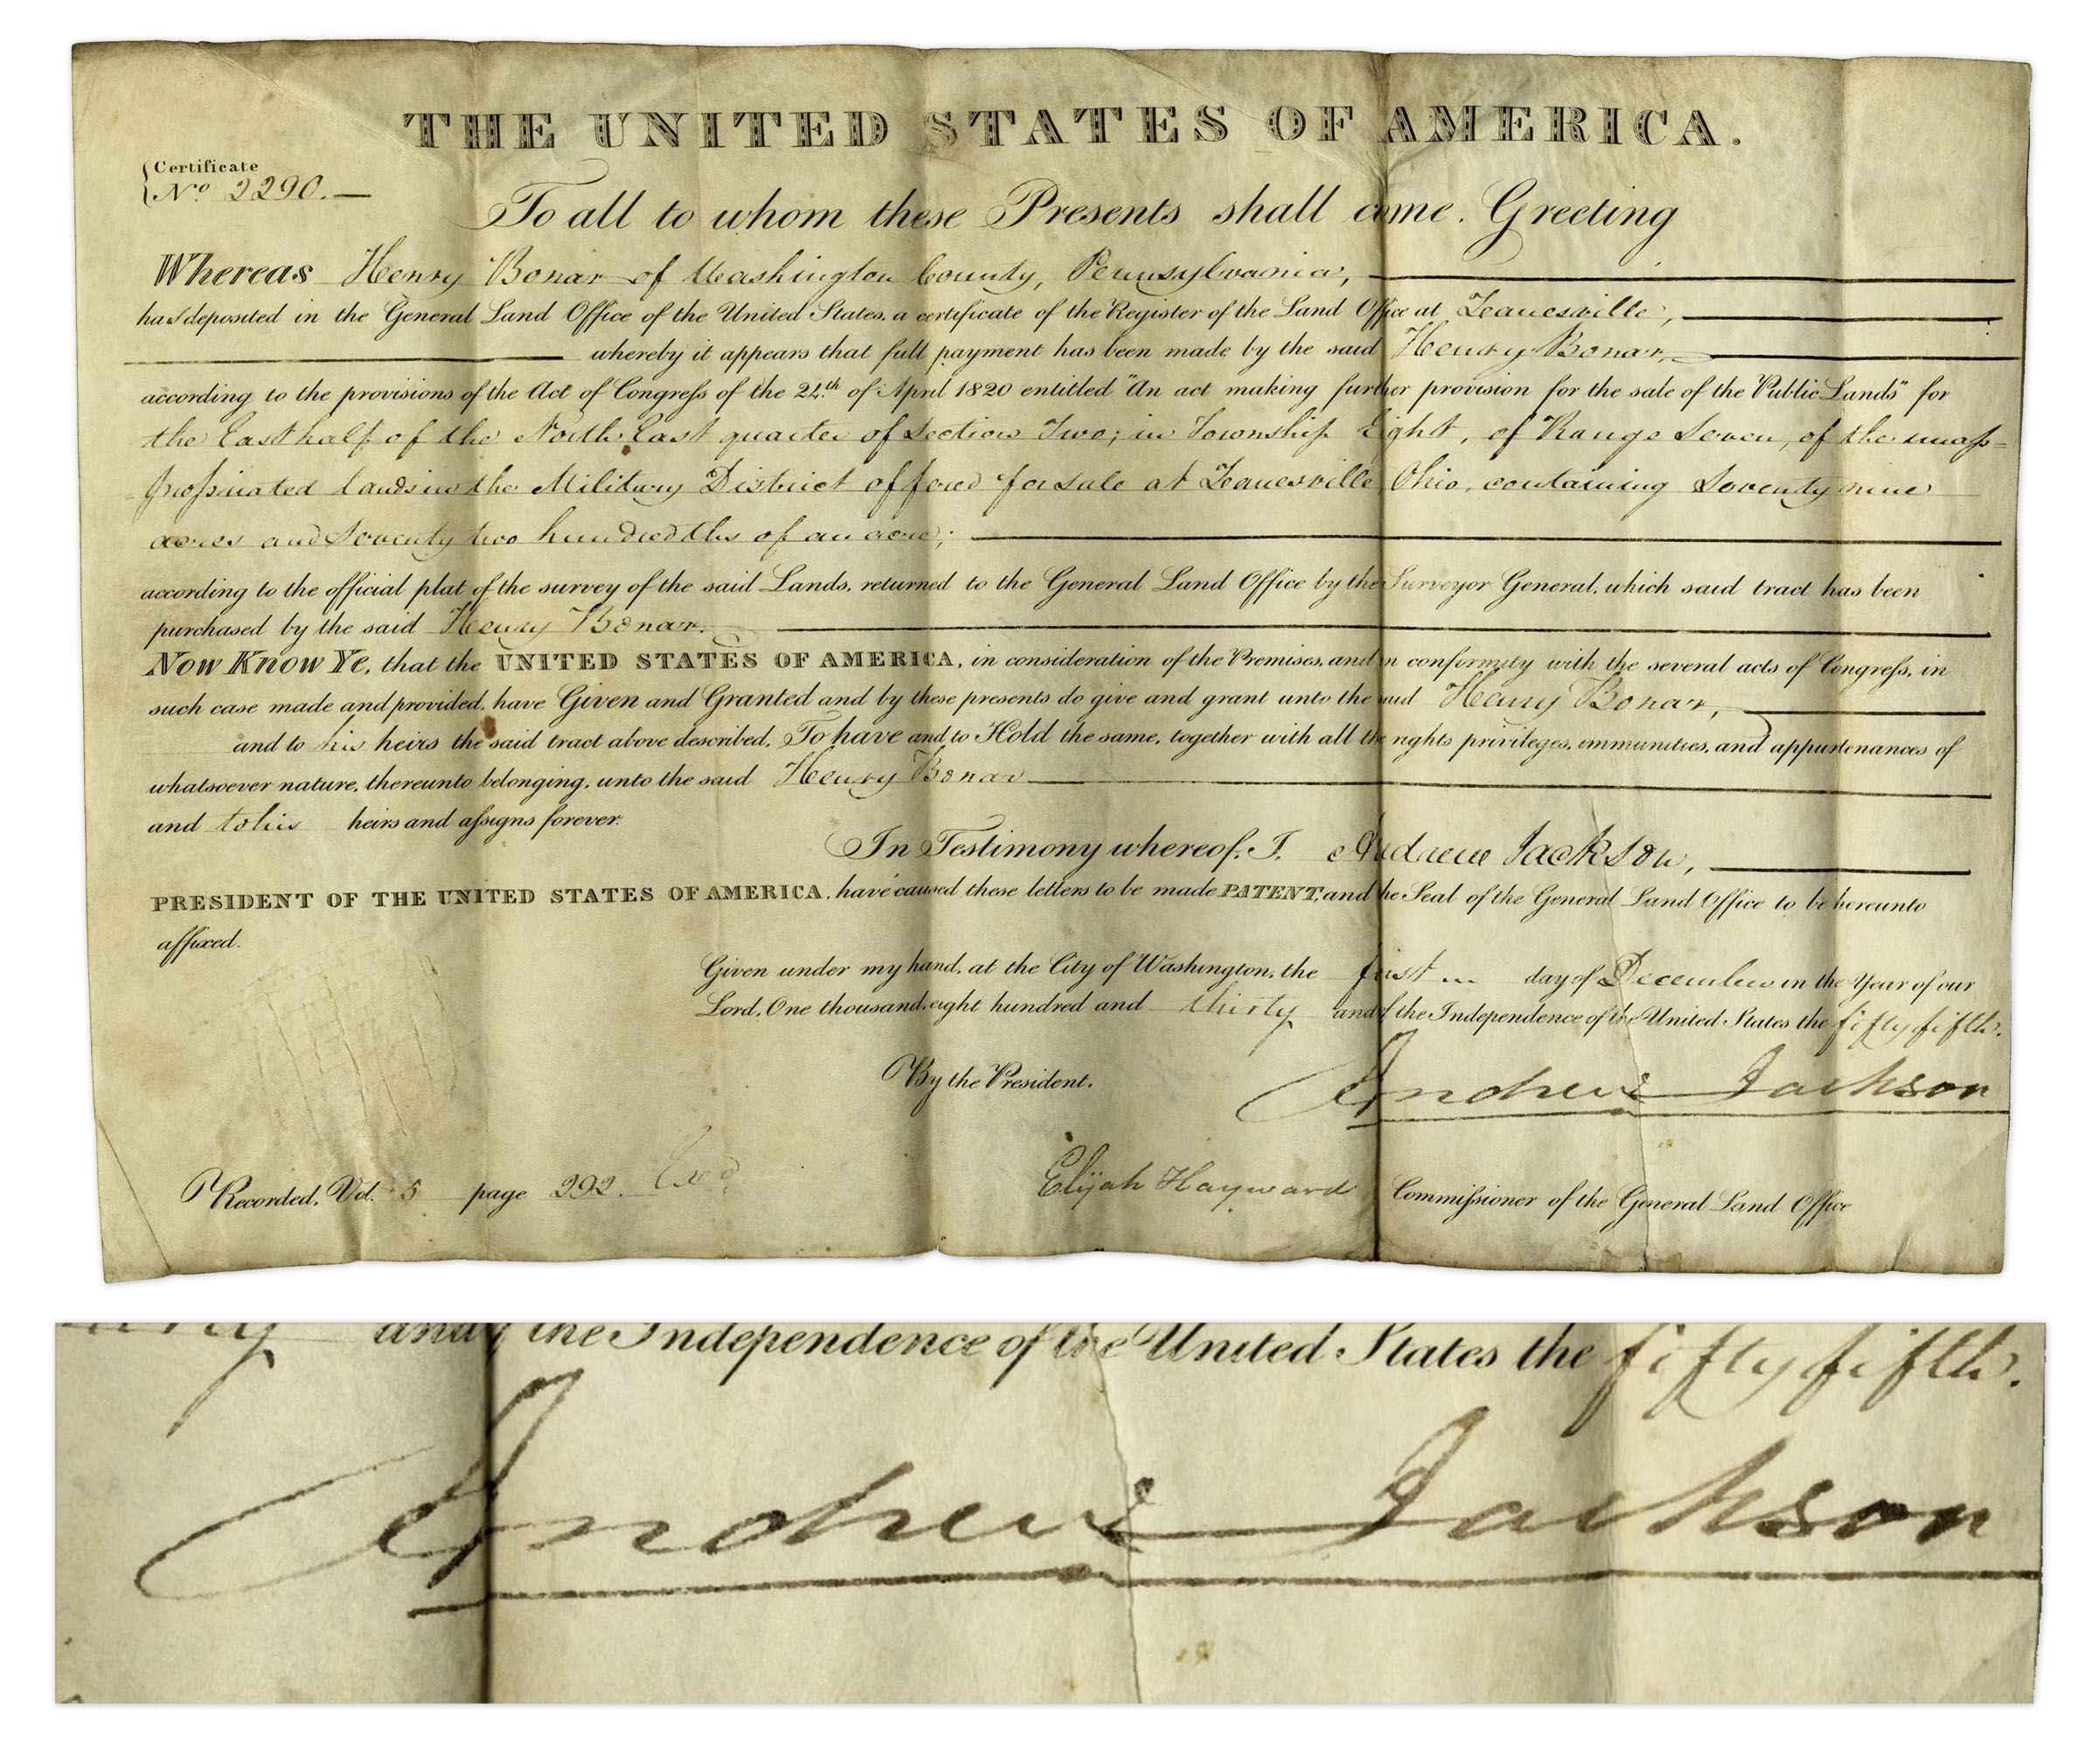 THE UNITED STATES OF AMERICA.
Certificate
No. 2290.
To all to whom these Presents shall come. Greeting
Whereas Henry Bonar of Washington County, Pennsylvania,
has deposited in the General Land Office of the United States, a certificate of the Register of the Land Office at Zanesville,
whereby it appears that full payment has been made by the said Henry Bonar,
according to the provisions of the Act of Congress of the 24th of April 1820 entitled "An act making further provision for the sale of the Public Lands" for
the East half of the North East quarter of Section Two, in Township Eight, of Range Seven, of the unap=
=propriated lands in the Military District offered for sale at Zanesville Ohio, containing Seventy nine
acres and Seventy two hundredths of an acre;
according to the official plat of the survey of the said Lands, returned to the General Land Office by the Surveyor General, which said tract has been
purchased by the said Henry Bonar.
Now Know Ye, that the UNITED STATES OF AMERICA, in consideration of the Premises, and in conformity with the several acts of Congress, in
such case made and provided, have Given and Granted and by these presents do give and grant unto the said Henry Bonar,
and to his heirs the said tract above described, To have and to Hold the same, together with all the rights privileges, immunities, and appurtenances of
whatsoever nature, thereunto belonging, unto the said Henry Bonar
and to his heirs and assigns forever.
In Testimony whereof, I, Andrew Jackson,
PRESIDENT OF THE UNITED STATES OF AMERICA, have caused these letters to be made PATENT, and the Seal of the General Land Office to be hereunto
affixed.
Given under my hand, at the City of Washington, the first day of December in the Year of our
Lord, One thousand, eight hundred and thirty and of the Independence of the United States the fifty fifth.
By the President.
Andrew Jackson
Elijah Hayward Commissioner of the General Land Office
Recorded, Vol. 5 page 292.
and of the Independence of the United States the fifty fifth.
Andrew Jackson